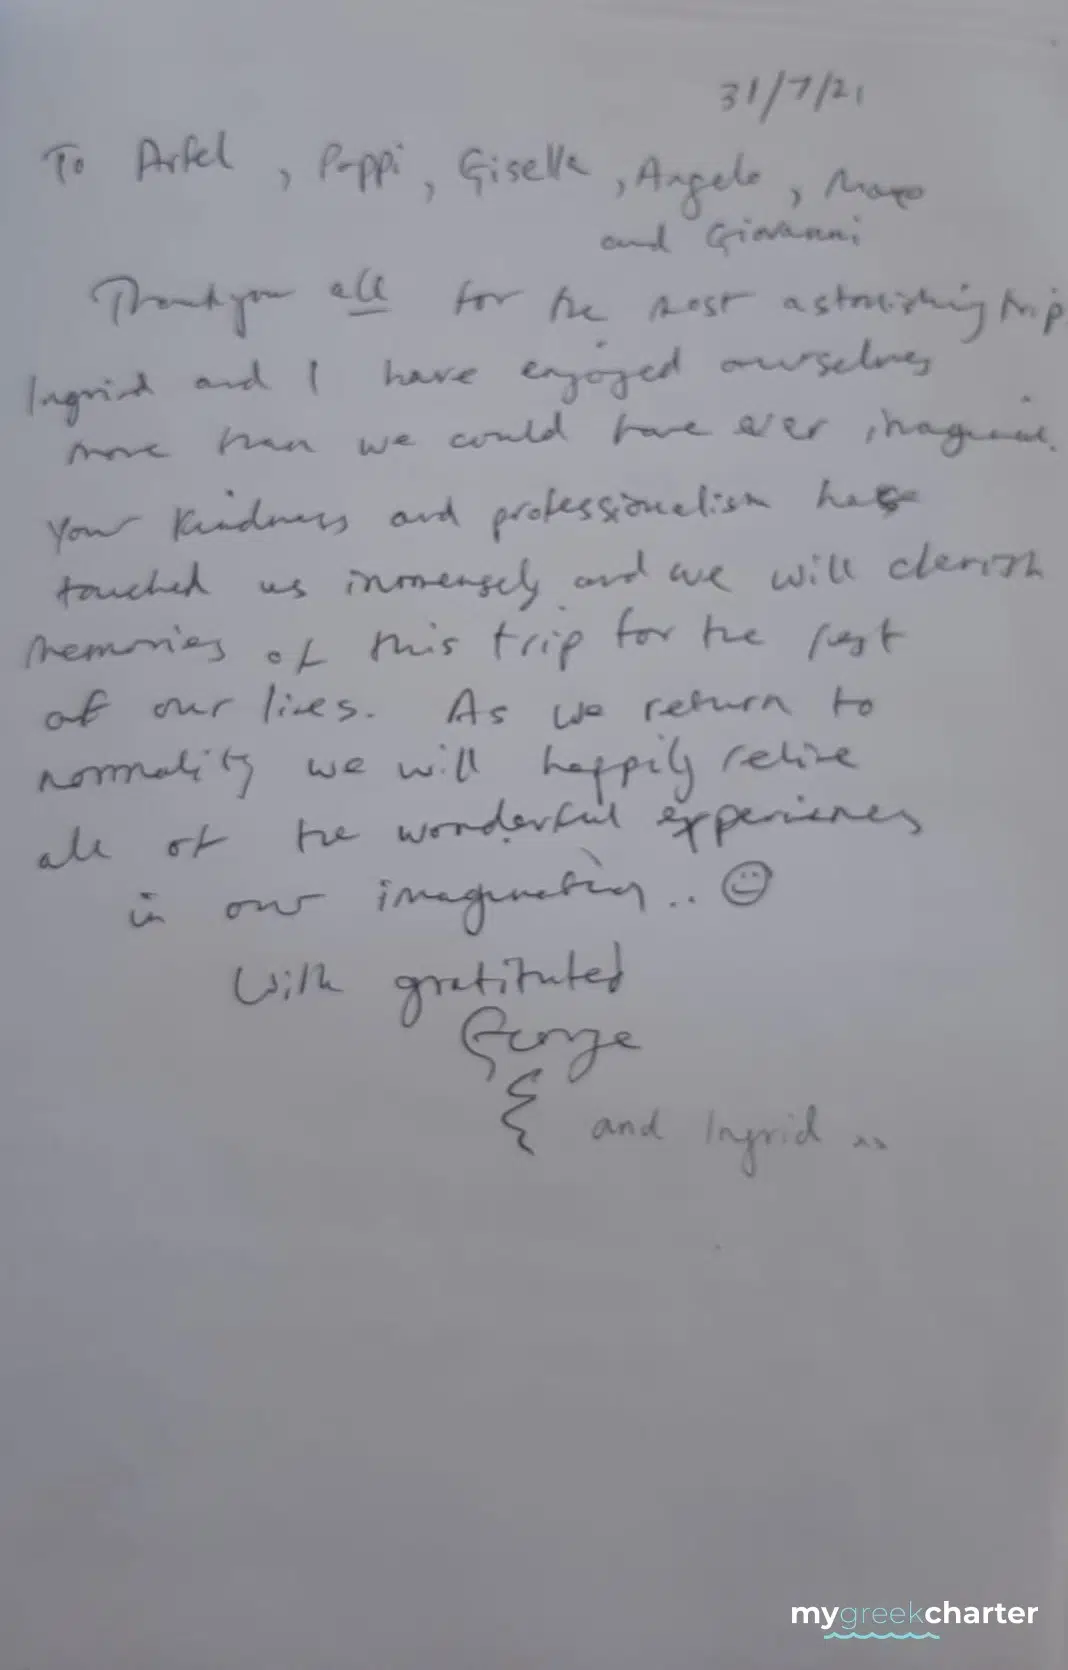 31/7/21
To Arfel, Poppi, Giselle, Angelo,
and Giovanni
Thank you all for the most astonishing trip
Ingrid and I have enjoyed ourselves
more than we could have ever imagined.
Your kindness and professionalism has
touched us immensely and we will cherish
memories of this trip for the rest
of our lives. As we return to
normality we will happily relive
all of the wonderful experiences
in our imagination.. ☺
With gratituted
George
and Ingrid
mygreekcharter